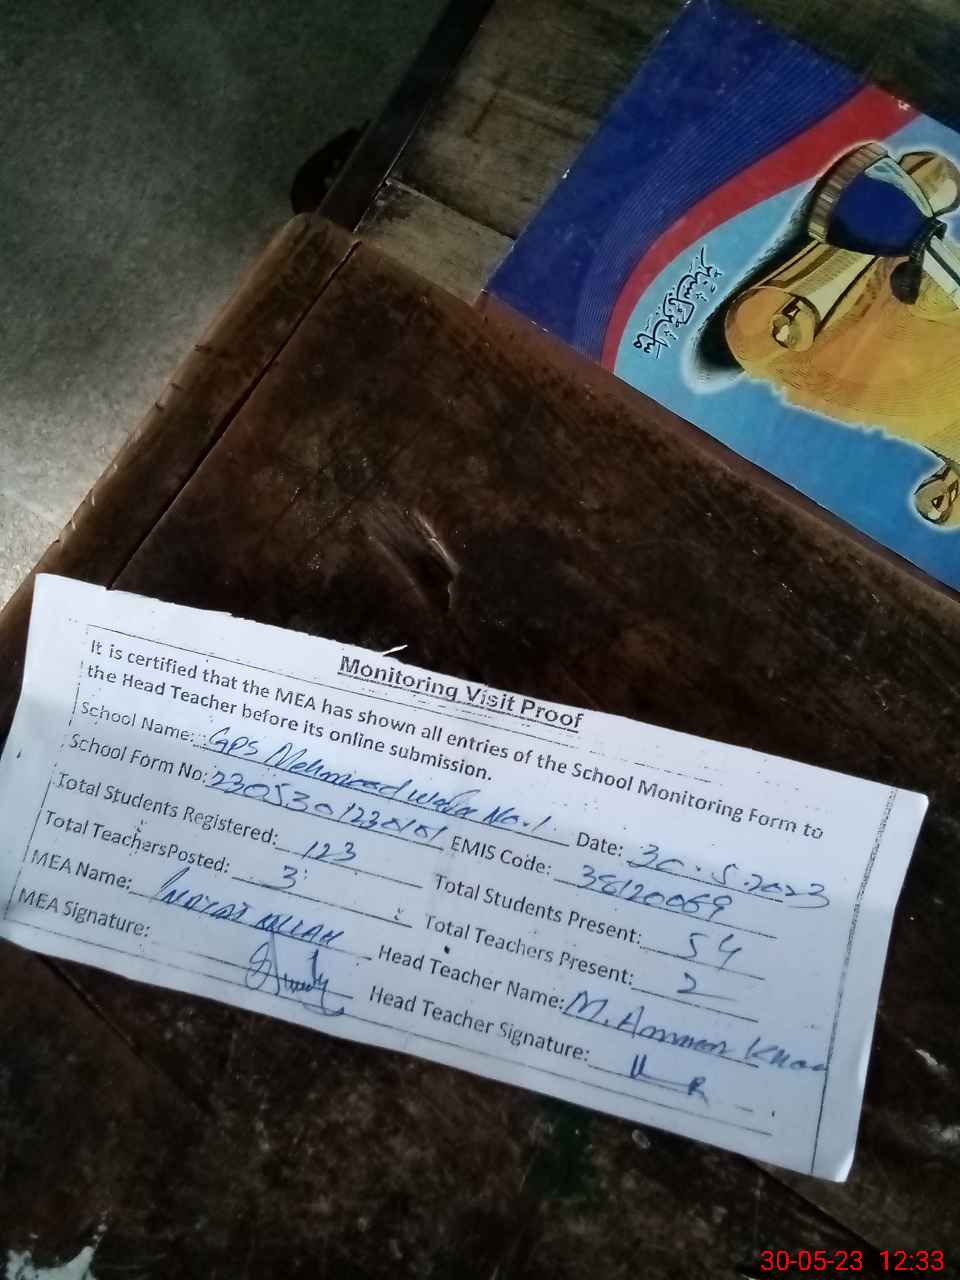 Monitoring Visit Proof
It is certified that the MEA has shown all entries of the School Monitoring Form to
the Head Teacher before its online submission.
School Name: GPS No.1 Date: 30.5.2023
School Form No: EMIS Code: 38120069
Total Students Registered: 123 Total Students Present: 54
Total TeachersPosted: 3 Total Teachers Present: 2
MEA Name: Inayat Ullah Head Teacher Name: M.
MEA Signature: Head Teacher Signature:
30-05-23 12:33